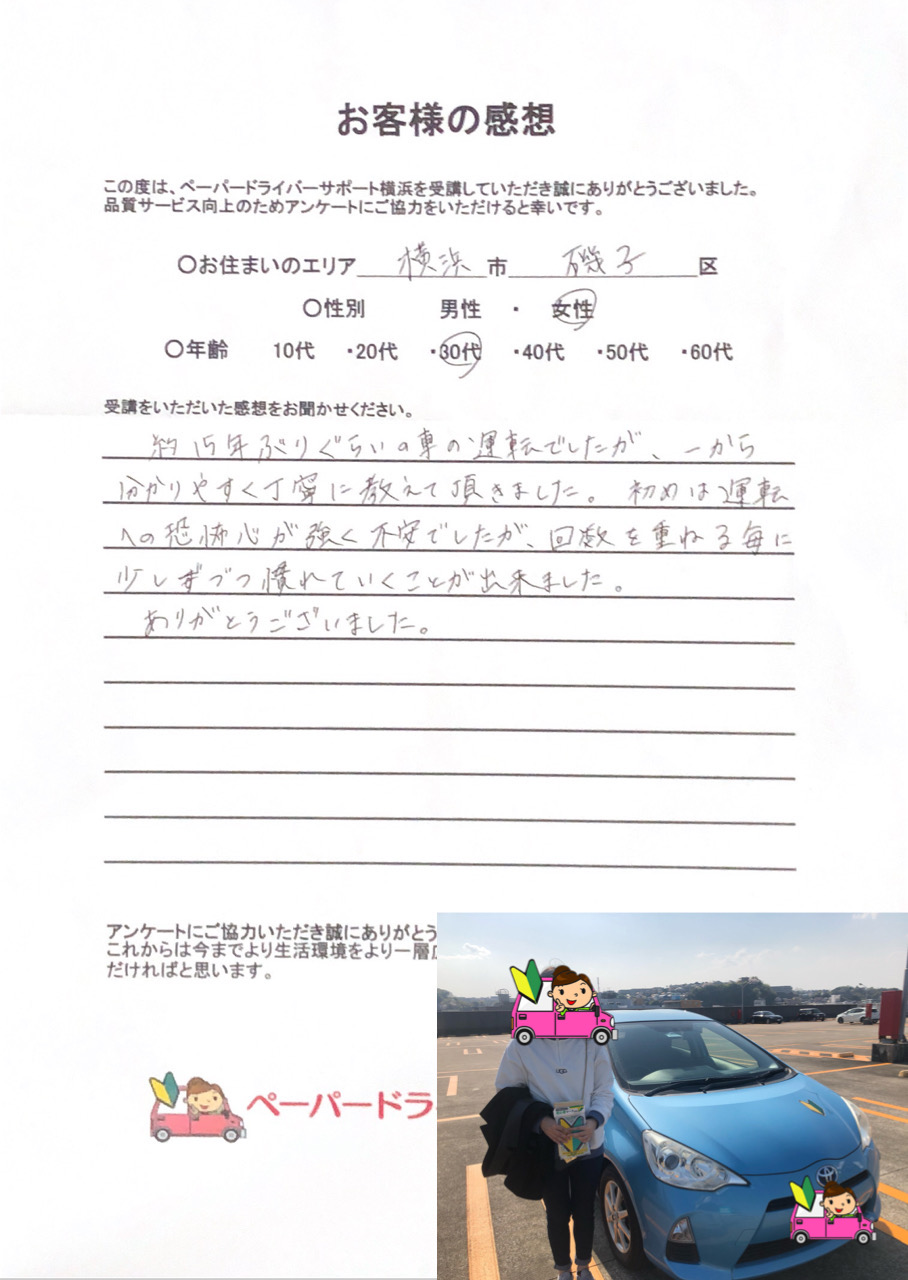 お客様の感想
この度は、ペーパードライバーサポート横浜を受講していただき誠にありがとうございました。
品質サービス向上のためアンケートにご協力をいただけると幸いです。
〇お住まいのエリア 横浜 市 磯子 区
〇性別 男性 ・ 女性
〇年齢 10代 ・20代 ・30代 ・40代 ・50代 ・60代
受講をいただいた感想をお聞かせください。
約15年ぶりぐらいの車の運転でしたが、一から
分かりやすく丁寧に教えて頂きました。初めは運転
への恐怖心が強く不安でしたが、回数を重ねる毎に
少しずつ慣れていくことが出来ました。
ありがとうございました。
アンケートにご協力いただき誠にありがとう
これからは今までより生活環境をより一層広
だければと思います。
ペーパードラ
UGG